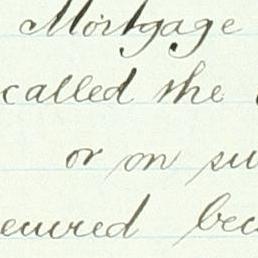 Mortgage
called the
or on su
ecured bec